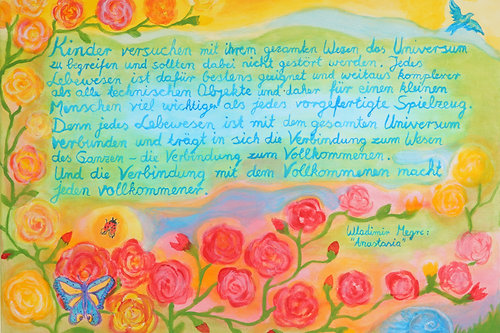 Kinder versuchen mit ihrem gesamten Wesen das Universum
zu begreifen und sollten dabei nicht gestört werden. Jedes
Lebewesen ist dafür bestens geeignet und weitaus komplexer
als alle technischen Objekte und daher für einen kleinen
Menschen viel wichtiger als jedes vorgefertigte Spielzeug.
Denn jedes Lebewesen ist mit dem gesamten Universum
verbunden und trägt in sich die Verbindung zum Wesen
des Ganzen – die Verbindung zum Vollkommenen.
Und die Verbindung mit dem Vollkommenen macht
jeden vollkommener.
Wladimir Megre:
"Anastasia"